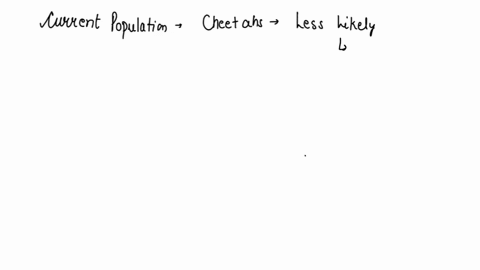 Current Population → Cheetahs → Less Likely
↳